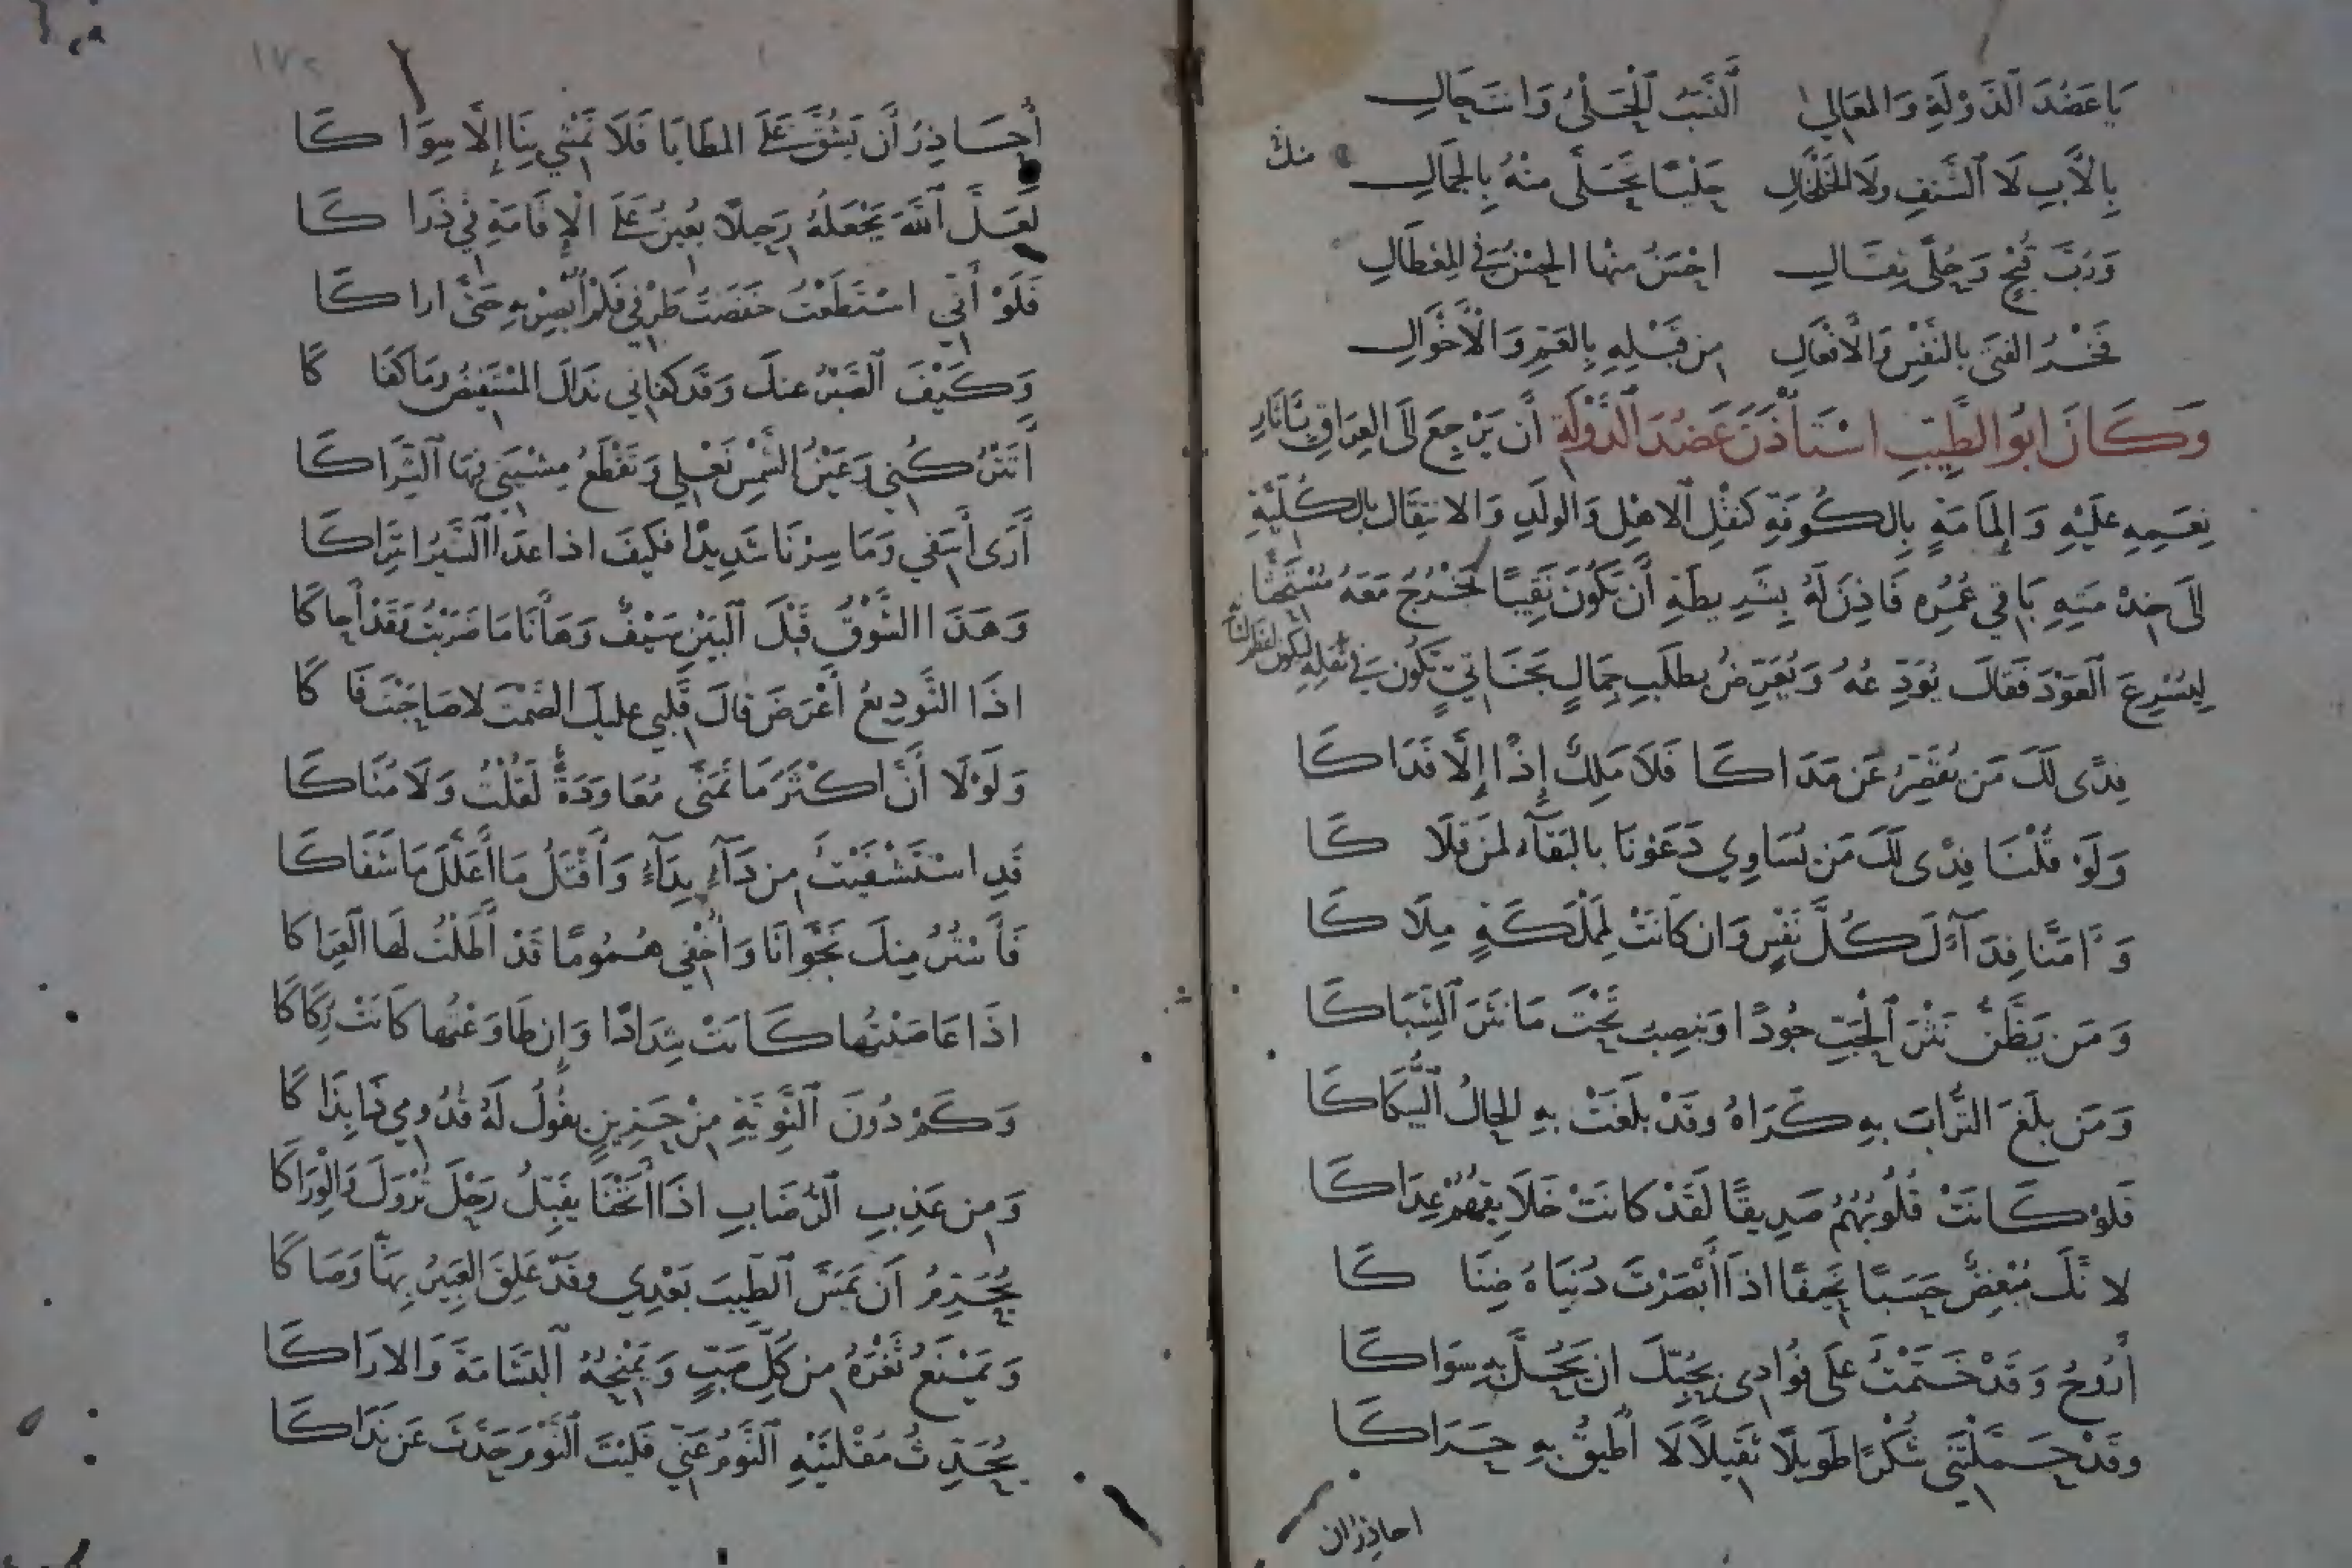 يَا عَضُدَ الدَّوْلَةِ وَالمعَالِي النَّسَبُ الْحَلْيُ وَانتَ الحَالِي
بِالأَبِ لَا الشَّنْفِ ولَا الخَلْخَالِ حَلْيًا تَحَلَّى منْهُ بِالجَمَالِ
منك
وَرُبَّ قُبْحٍ وَحُلًى ثِقَالِ احْسَنُ منْهَا الحسْنُ فِي المِعْطَالِ
فَخْرُ الفتَى بالنفْسِ وَالأَفْعَالِ مِن قَبْلِهِ بِالعَمِّ وَالأَخْوَالِ
وَكَانَ ابُو الطَّيِّبِ اسْتَأْذَنَ عَضُدَ الدَّوْلَةِ أَن يَرْجِعَ الَى العِرَاقِ
نِعَمِهِ عَلَيْهِ وَ بِالكُوفَةِ الاهْلِ وَالولَدِ وَالانتِقَال بالكُلِّيَّةِ
الَى خِدْمَتِهِ بَاقِي عُمُرِهِ فَاذِنَ لَهُ بِشَرِيطَةِ أَن يَكُونَ نَقِيبًا يَخْرُجُ مَعَهُ مُسْتَحِثًّا
لِيُسْرِعَ العَوْدَ فَقَالَ يُوَدِّعُهُ وَيُعَرِّضُ بطَلَبِ جِمَالٍ بَخَاتِيٍّ تَكُون فِي ثقله ليكون
فِدًى لَكَ مَن يُقَصِّرُ عَن مَدَاكَا فَلَا مَلِكٌ إِذًا إِلَّا فَدَاكَا
وَلَوْ قُلْنَا فِدًى لَكَ مَن يُسَاوِي دَعَوْنَا بالبَقَآءِ لمَن قَلَاكَا
وَأَمَنَّا فِدَآءَكَ كُلَّ نَفْسٍ وَان كَانَتْ لِمَمْلَكَةٍ مِلَاكَا
وَمَن يَظَّنُّ نَثْرَ الْحَبِّ جُودًا وَيَنصِبُ تَحْتَ مَا نَثَرَ الشِّبَاكَا
وَمَن بلَغَ التُّرَابَ بِهِ كَرَاهُ وقَدْ بلَغَتْ بِهِ الحالُ السُّكَاكَا
فَلَوْ كَانَتْ قُلُوبُهُمُ صَدِيقًا لَقَدْ كَانَتْ خَلَايِقُهُمْ عِدَاكَا
لانَّكَ مُبْغِضٌ حَسَبًا نَحِيفًا اذَا أَبْصَرْتَ دُنيَاهُ ضِنَاكَا
أَرُوحُ وَقَدْ خَتَمْتَ عَلَى فُؤَادِي بِحُبِّكَ ان يَحُلَّ بِهِ سِوَاكَا
وقَدْ حَمَّلْتَنِي شُكْرًا طَوِيلًا ثَقِيلًا لَا أُطِيقُ بِهِ حَرَاكَا
احاذران
١٧٢
أُحَاذِرُ أَن يَشُقَّ عَلَى المطَايَا فَلَا تَمْشِي بِنَا إِلَّا سِوَاكَا
لَعَلَّ اللَّهَ يَجْعَلُهُ رَحِيلًا يُعِينُ عَلَى الْإِقَامَةِ فِي ذَرَاكَا
فَلَوْ أَنِّي اسْتَطَعْتُ خَفَضتُ طَرْفِي فَلَمْ أُبْصِرْ بِهِ حَتَّى اراكَا
وَكَيْفَ الصَّبْرُ عنكَ وَقَد كفاني نَدَاكَ المسْتَفِيضُ ومَا كَفَاكَا
أَتَتْرُكُنِي وَعَيْنُ الشَّمْسِ نَعْلِي وَتَقْطَعُ مِشْيَتِي فِيهَا الشِّرَاكَا
أَرَى أَسَفِي وَمَا سِرْنَا شَدِيدًا فكَيفَ اذا عدَا السَّيْرُ ابْتِرَاكَا
وَهَذَا الشَّوْقُ قَبْلَ الْبَيْنِ سَيْفٌ وَهَا أَنَا مَا ضَرَبْتُ وقَدْ أَحاكَا
اذَا التَّودِيعُ أَعْرَضَ قَالَ قَلْبِي عليكَ الصَّمْتَ لاصَاحَبْتَ فَاكَا
وَلَوْلَا أَنَّ اكْثَرَ مَا تَمَنَّى مُعَاوَدَةٌ لَقُلْتُ وَلَا مُنَاكَا
قَدِ اسْتَشْفَيْتَ مِن دَآءٍ بِدَآءٍ وَأَقْتَلُ مَا أَعَلَّكَ مَا شَفَاكَا
فَأَسْتُرُ مِنكَ نَجْوَانَا وَأُخْفِي هُمُومًا قَدْ أَطَلْتُ لَهَا الْعِرَاكَا
اذَا عَاصَيْتُهَا كَانَتْ شِدَادًا وَإِن طَاوَعْتُها كَانَتْ رِكَاكَا
وَكَمْ دُونَ الثَّوِيَّةِ مِنْ حَزِينٍ يقُولُ لَهُ قُدُومِي ذَا بِذَاكَا
وَمِن عَذْبِ الرُّضَابِ اذَا أَنَخْنَا يقَبِّلُ رَحْلَ تُرْوَكَ وَالْوِرَاكَا
يُحَرِّمُ أَن يَمَسَّ الطِّيبَ بَعْدِي وقَدْ عَلِقَ العَبِيرُ بِهِ وَصَاكَا
وَيَمْنَعُ ثَغْرَهُ مِن كُلِّ صَبٍّ وَيَمْنَحُهُ الْبَشَامَةَ وَالارَاكَا
يُحَدِّثُ مُقْلَتَيْهِ النَّوْمُ عَنِّي فَلَيْتَ النَّوْمَ حَدَّثَ عَن نَدَاكَا